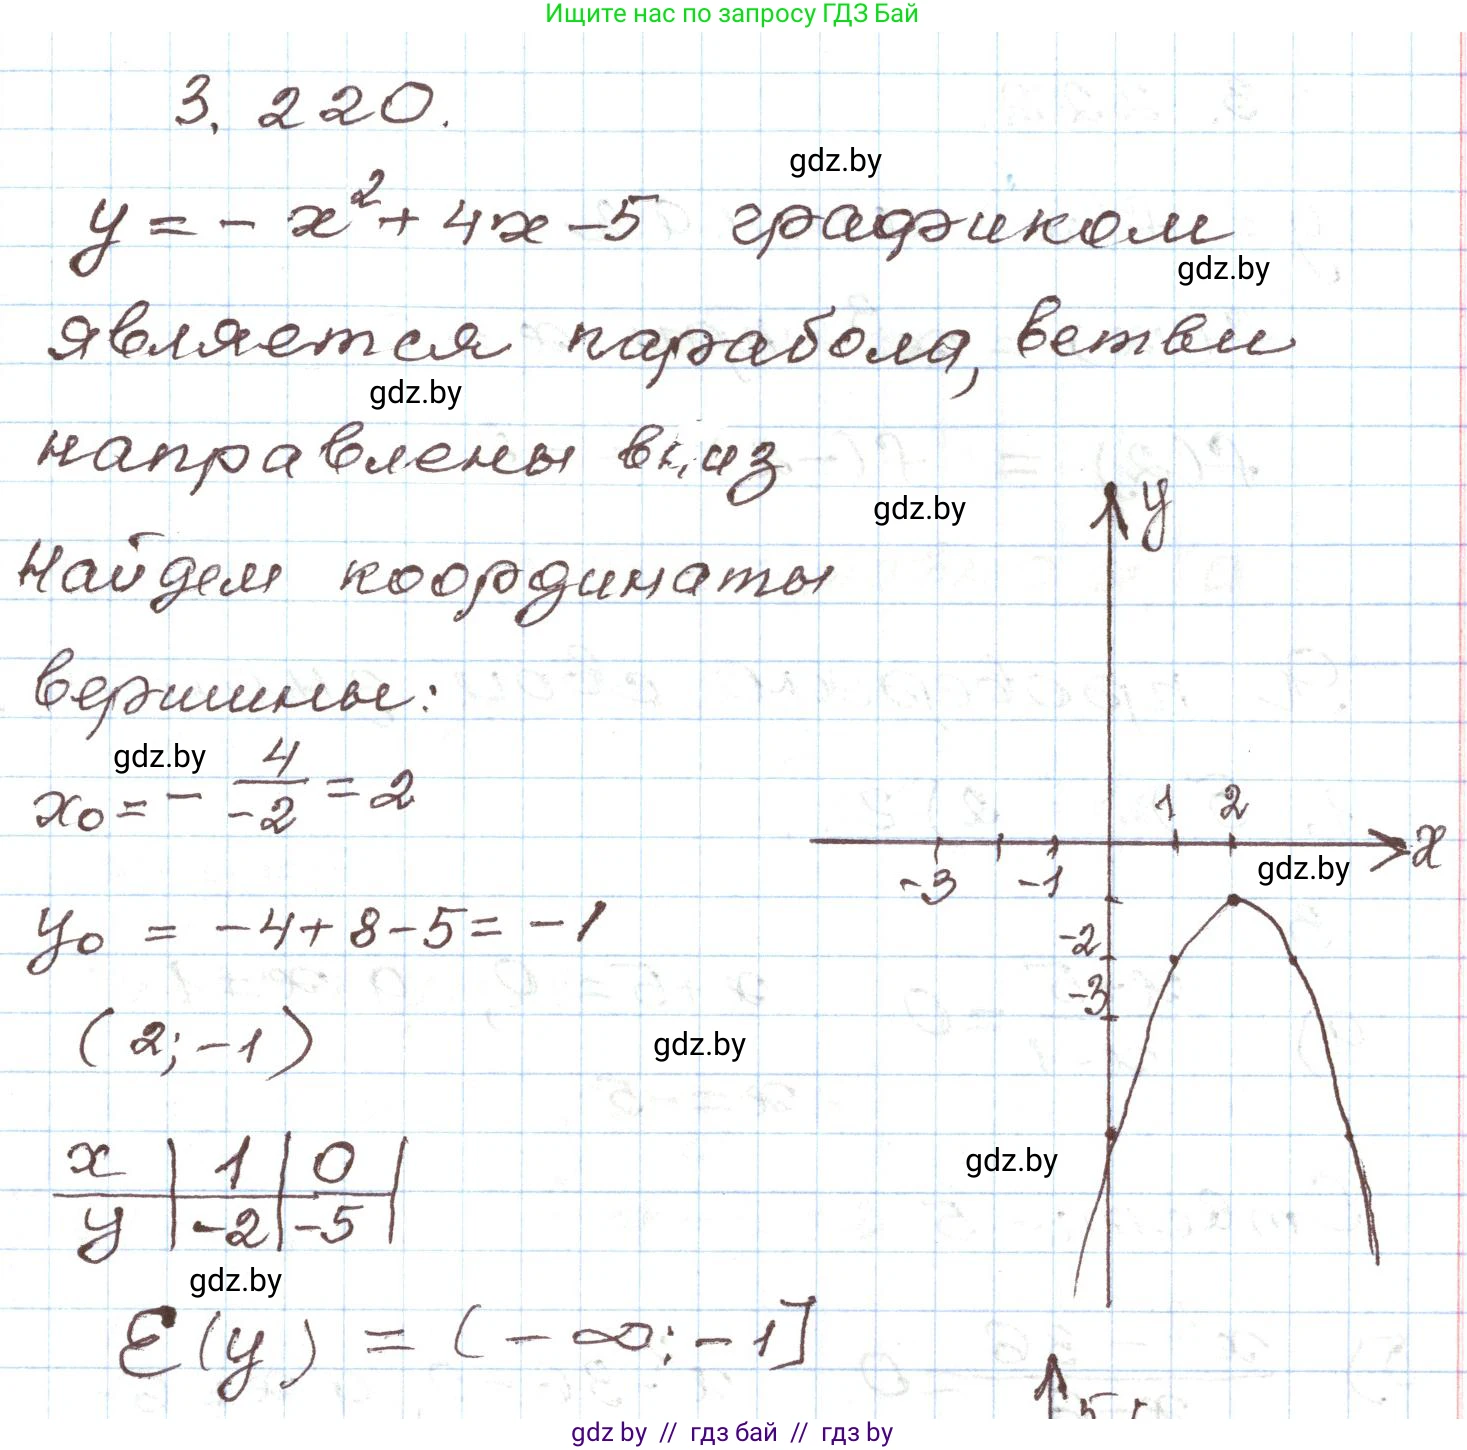 Ищите нас по запросу ГДЗ Бай
3.220.
gdz.by
y = - x² + 4x - 5 графиком
gdz.by
является парабола, ветви
gdz.by
направлены вниз
gdz.by
y
Найдем координаты
вершины:
gdz.by
x₀ = - 4/-2 = 2
1 2
x
gdz.by
-3 -1
y₀ = -4+8-5 = -1
-2
-3
(2; -1)
gdz.by
x | 1 | 0 |
gdz.by
y | -2 | -5 |
gdz.by
E(y) = (-∞; -1]
5
gdz by // гдз бай // гдз by